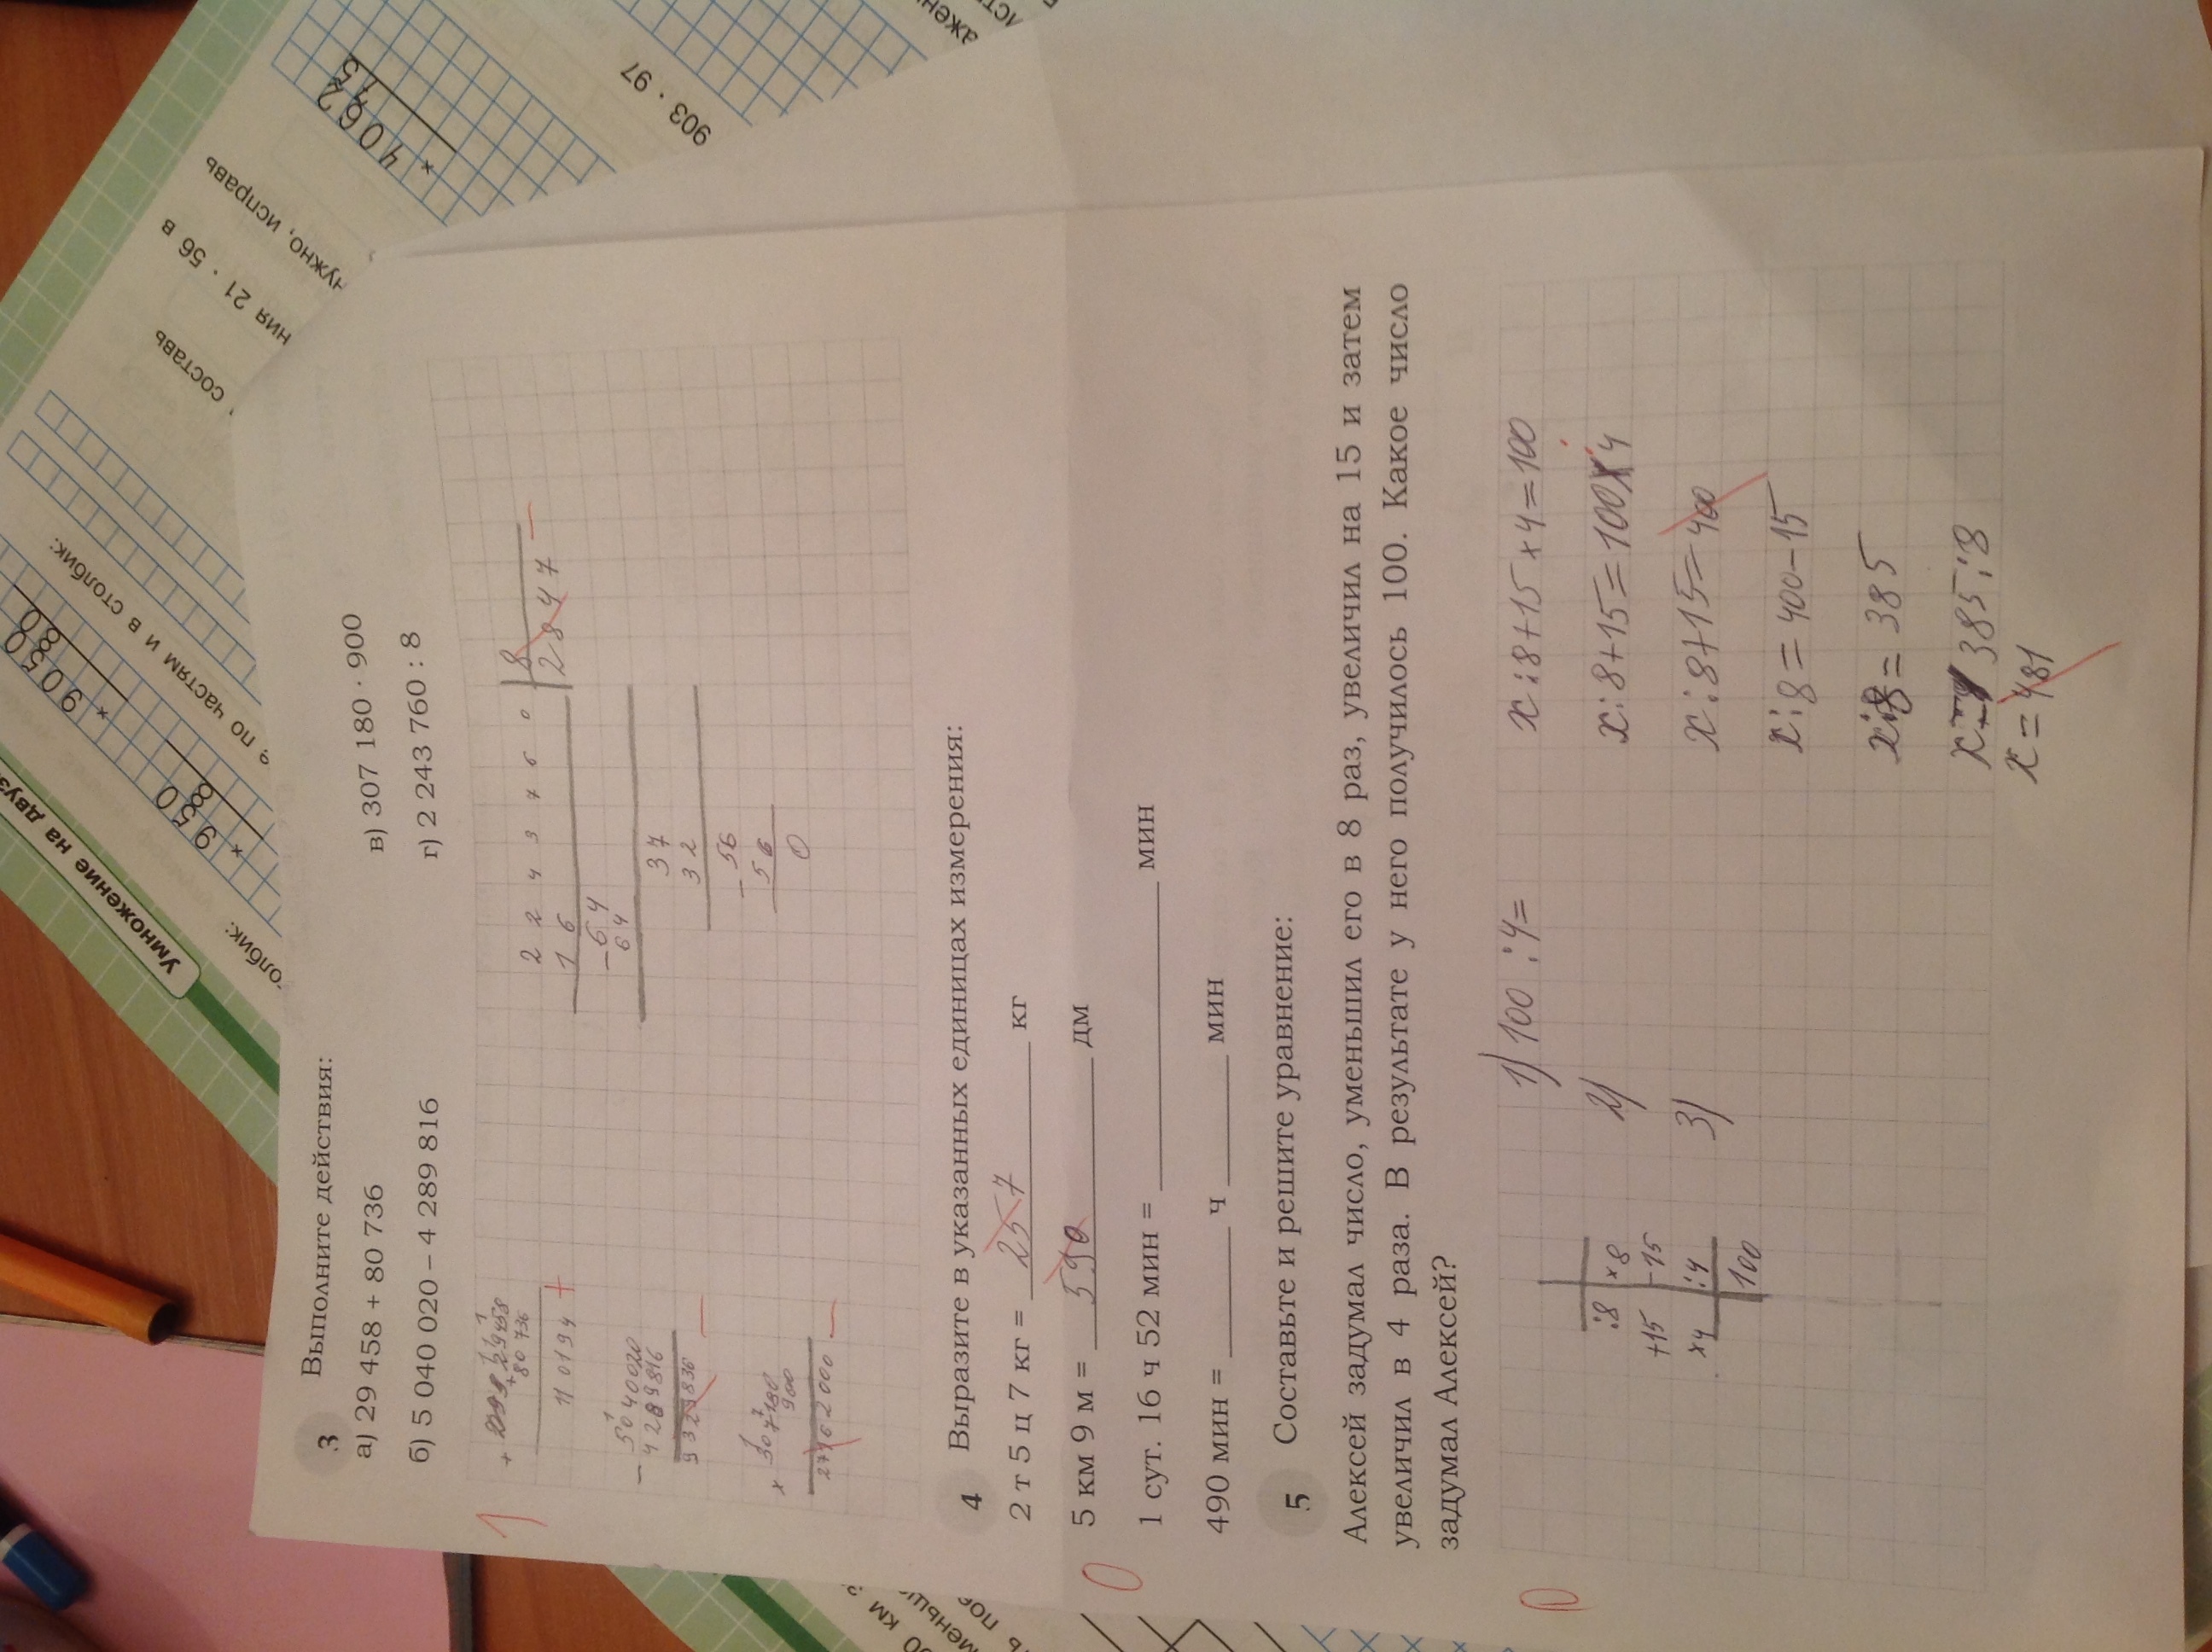 3 Выполните действия:
а) 29 458 + 80 736
в) 307 180 · 900
б) 5 040 020 – 4 289 816
г) 2 243 760 : 8
1
+ 29458
80 736
110194 +
– 5040020
4289816
–
× 307180
900
–
2 2 4 3 7 6 0 | 8
1 6
2 8 0 4 7 –
– 6 4
6 4
3 7
3 2
– 56
56
0
4 Выразите в указанных единицах измерения:
2 т 5 ц 7 кг = 257 кг
5 км 9 м = 590 дм
1 сут. 16 ч 52 мин = мин
490 мин = ч мин
0
5 Составьте и решите уравнение:
Алексей задумал число, уменьшил его в 8 раз, увеличил на 15 и затем
увеличил в 4 раза. В результате у него получилось 100. Какое число
задумал Алексей?
0
:8 ×8
+15 –15
×4 :4
100
1) 100 : 4 =
2)
3)
x:8+15×4=100
x:8+15=100×4
x:8+15=400
x:8=400–15
x:8=385
385:8
x=481
Умножение на двуз
олбик:
× 958
× 9050
80
е по частям и в столбик:
составь
ния 21 · 56 в
нужно, исправь
× 4062
903 · 97